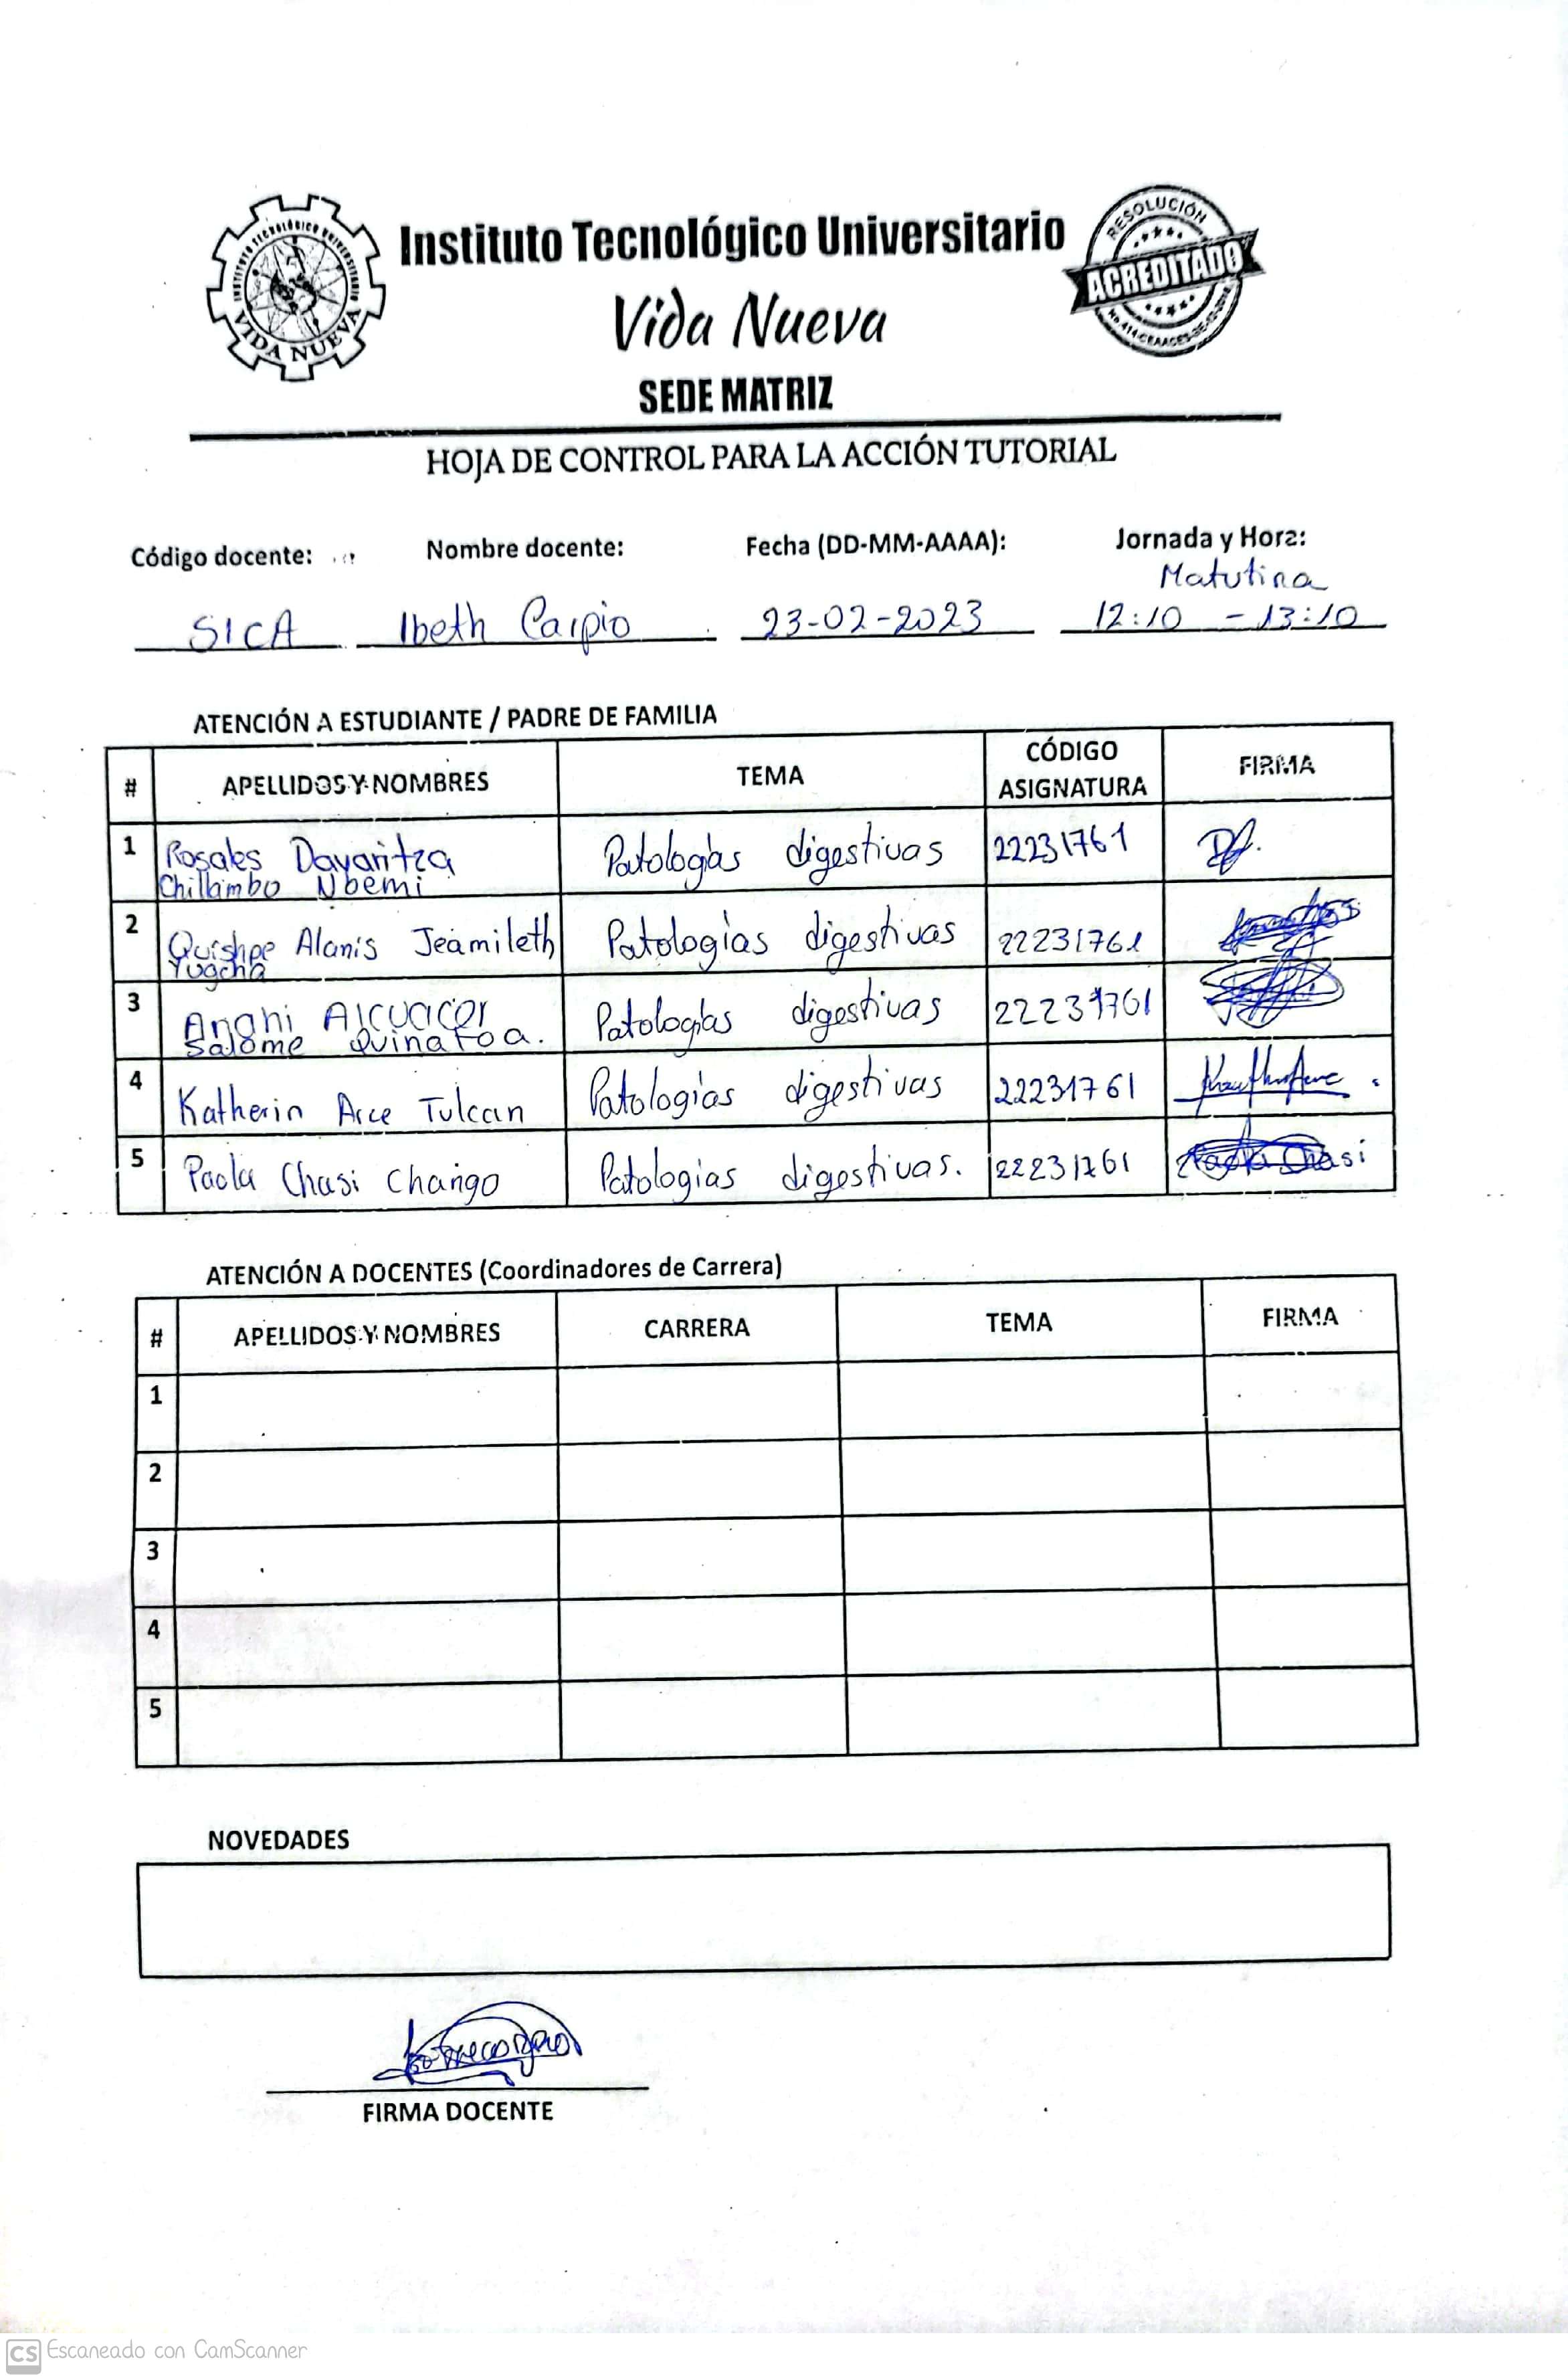 INSTITUTO TECNOLÓGICO UNIVERSITARIO
VIDA NUEVA
Instituto Tecnológico Universitario
Vida Nueva
SEDE MATRIZ
RESOLUCIÓN
ACREDITADO
HOJA DE CONTROL PARA LA ACCIÓN TUTORIAL
Código docente: Nombre docente: Fecha (DD-MM-AAAA): Jornada y Hora:
Matutina
SICA Ibeth Carpio 23-02-2023 12:10 - 13:10
ATENCIÓN A ESTUDIANTE / PADRE DE FAMILIA
# APELLIDOS Y NOMBRES TEMA CÓDIGO ASIGNATURA FIRMA
1 Rosales Dayaritza Patologías digestivas 22231761
Chillambo Noemi
2 Quishpe Alanis Jeamileth Patologías digestivas 22231761
Yugcha
3 Anahi Alcuacer Patologías digestivas 22231761
Salome Quinatoa.
4 Katherin Arce Tulcan Patologías digestivas 22231761
5 Paola Chasi Chango Patologías digestivas. 22231761 Paola Chasi
ATENCIÓN A DOCENTES (Coordinadores de Carrera)
# APELLIDOS Y NOMBRES CARRERA TEMA FIRMA
1
2
3
4
5
NOVEDADES
FIRMA DOCENTE
CS Escaneado con CamScanner